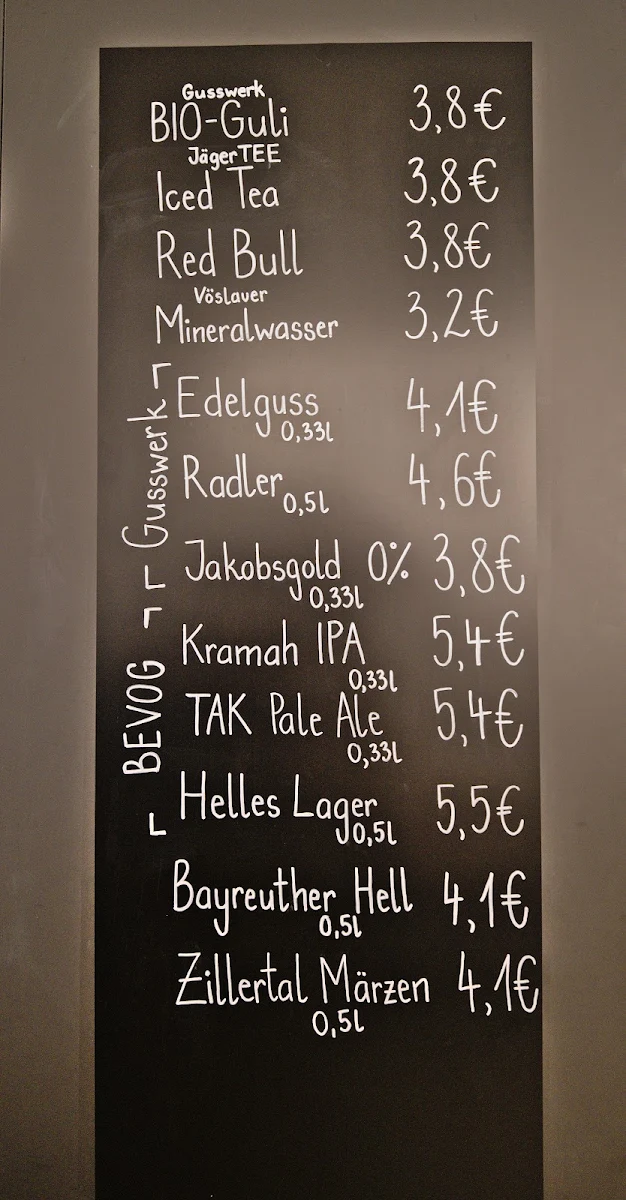 Gusswerk
BIO-Guli 3,8€
JägerTEE
Iced Tea 3,8€
Red Bull 3,8€
Vöslauer
Mineralwasser 3,2€
Gusswerk
Edelguss 4,1€
0,33l
Radler 0,5l 4,6€
Jakobsgold 0% 3,8€
0,33l
BEVOG
Kramah IPA 5,4€
0,33l
TAK Pale Ale 5,4€
0,33l
Helles Lager 5,5€
0,5l
Bayreuther Hell 4,1€
0,5l
Zillertal Märzen 4,1€
0,5l